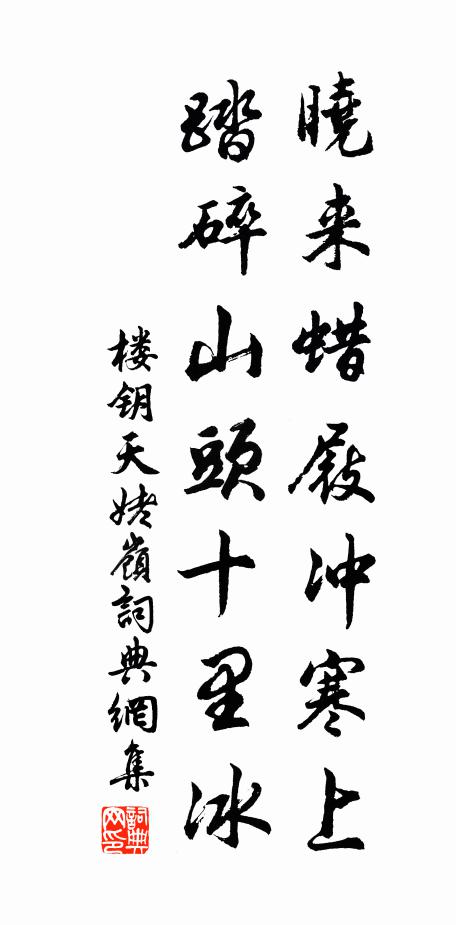 曉来蜡屐冲寒上
踏碎山頭十里冰
楼钥天姥嶺詞典網集
詞典网印